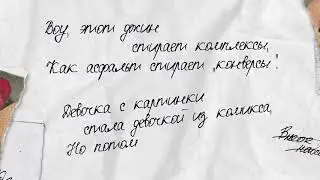 Воу, этот джин
стирает комплексы,
Как асфальт стирает „конверсы".
Девочка с картинки
стала девочкой из комикса,
Но потом